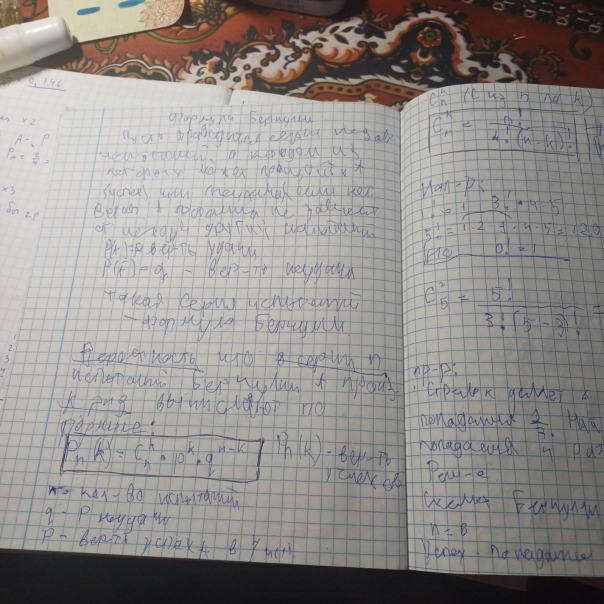 0,146
Формула Бернулли
Пусть проводится серия незав.
испытаний, в каждом из
которых может произойти A
(успех) или (неудача) если нет
от исход других испытаний
P(A)=p вер-ть удачи
P(Ā)=q - вер-ть неудача
такая серия испытаний
- формула Бернулли
Вероятность что в серии n
испытаний Бернулли A произ.
k раз вычисляют по
формуле:
Pₙ(k) = Cₙᵏ · pᵏ · qⁿ⁻ᵏ
Pₙ(k) - вер-ть
успехов
n - кол-во испытаний
q - P неудачи
P - вер-ть успеха в 1 исп.
Cₙᵏ (C из n по k)
Cₙᵏ = n! / k!(n-k)!
Нап-р:
1! = 1
5! = 1·2·3·4·5 = 120
0! = 1
C₅³ = 5! / 3!(5-3)! =
пр-р:
Стрелок делает 6
попадания 2/3. Най
попадания 4 раз
Реш-е
Схема Бернулли
n = 6
Успех - попадание